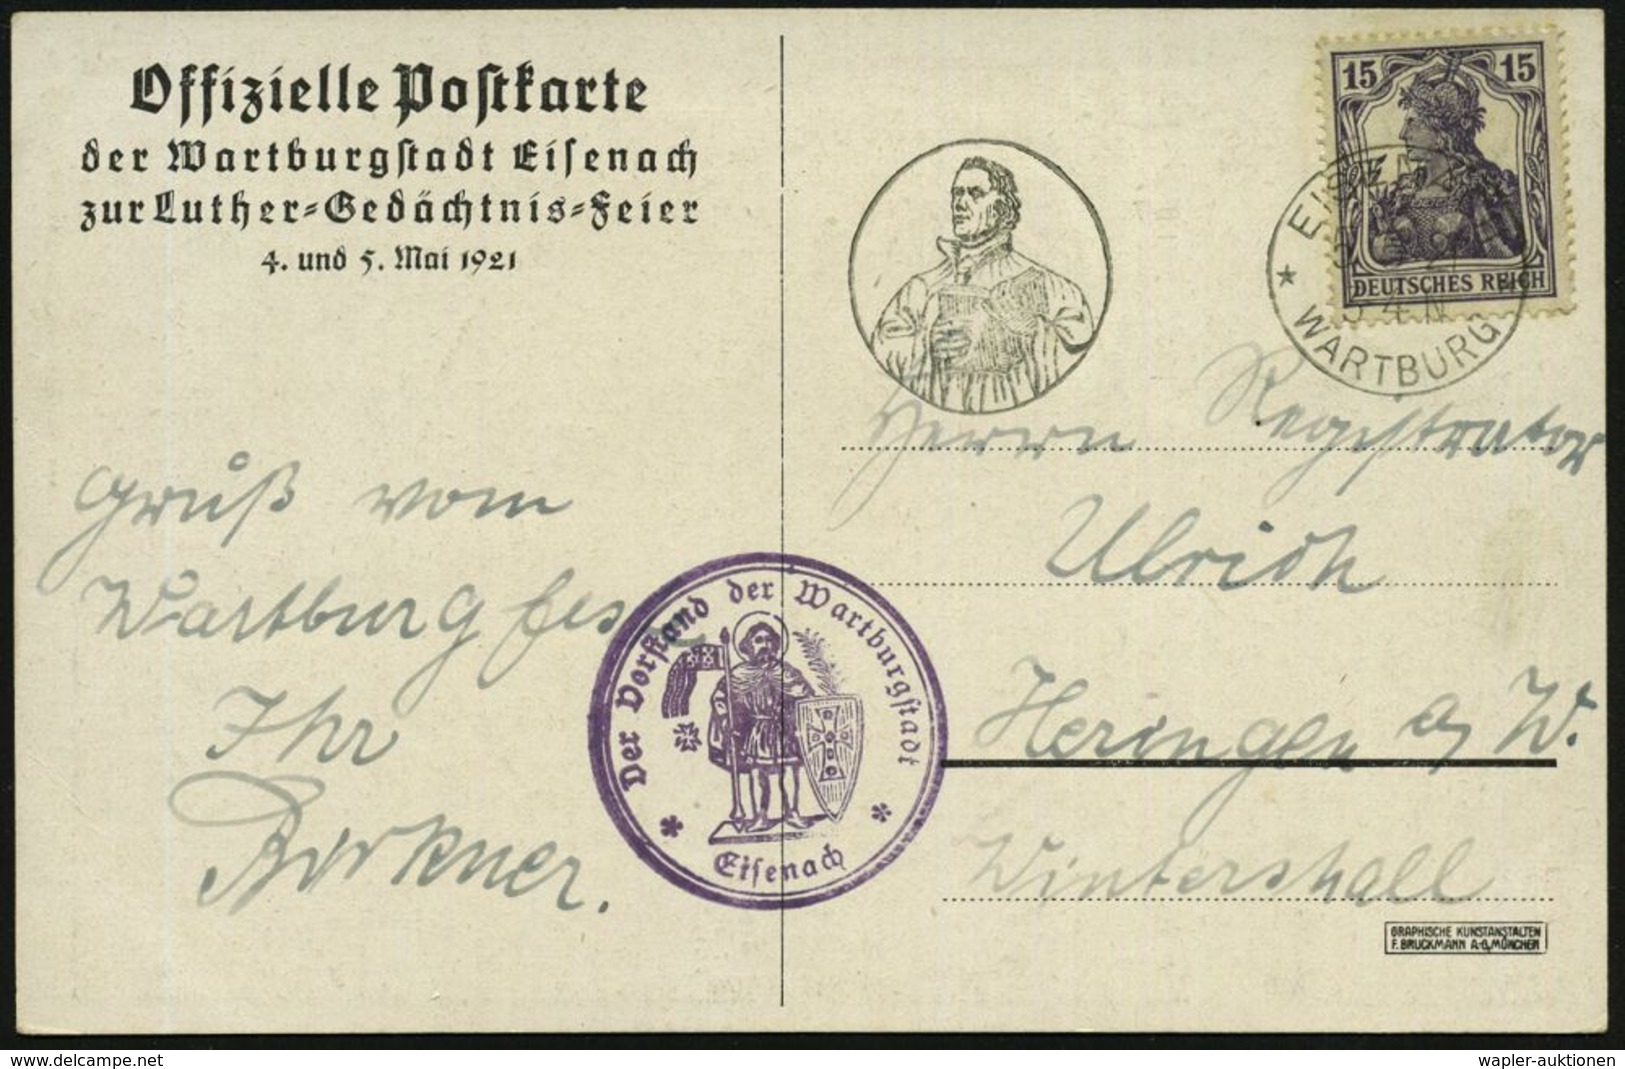 Offizielle Postkarte
der Wartburgstadt Eisenach
zur Luther-Gedächtnis-Feier
4. und 5. Mai 1921
15 15
DEUTSCHES REICH
EISENACH
* WARTBURG
Herrn Registrator
Ulrich
Heringen a/ W.
Wintershall
Gruß vom
Wartburgfest
Ihr
Birkner.
Der Vorstand der Wartburgstadt
* Eisenach *
GRAPHISCHE KUNSTANSTALTEN
F. BRUCKMANN A-G, MÜNCHEN
www.delcampe.net
wapler-auktionen